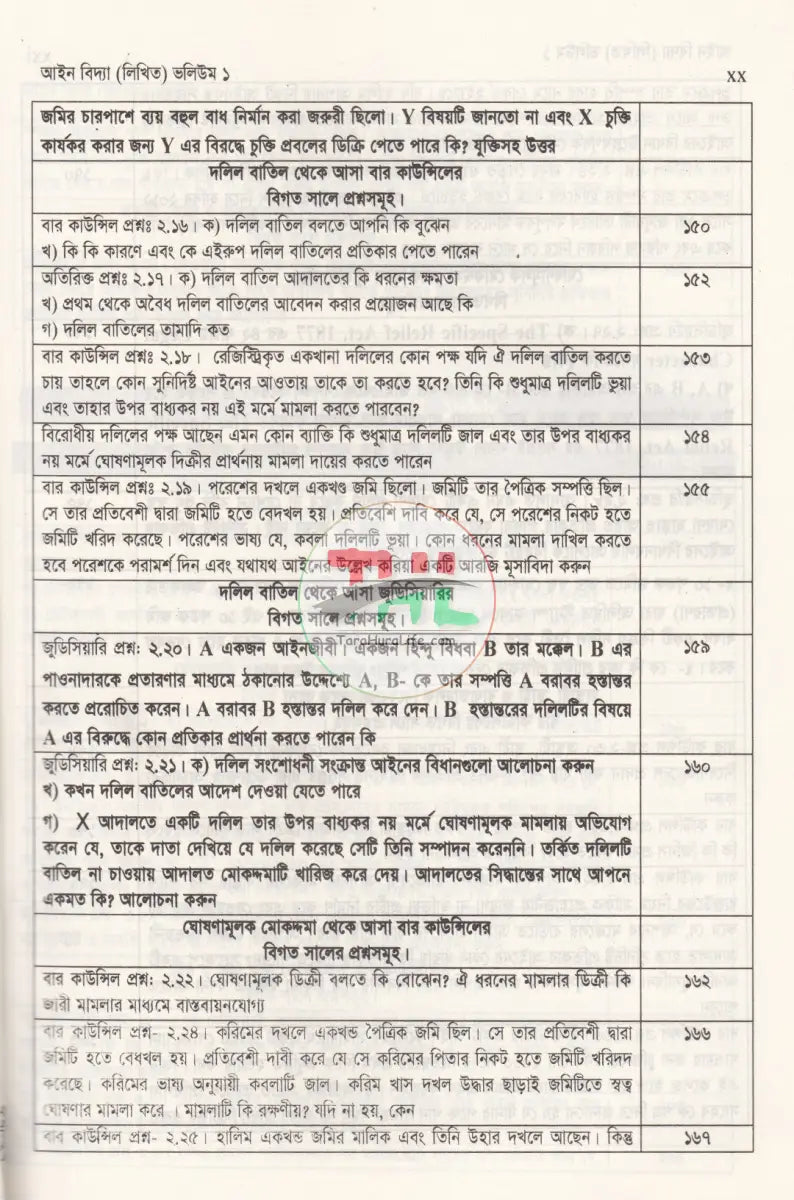 আইন বিদ্যা (লিখিত) ভলিউম ১
xx
জমির চারপাশে ব্যয় বহুল বাধ নির্মান করা জরুরী ছিলো। Y বিষয়টি জানতো না এবং X চুক্তি
কার্যকর করার জন্য Y এর বিরদ্ধে চুক্তি প্রবলের ডিক্রি পেতে পারে কি? যুক্তিসহ উত্তর
দলিল বাতিল থেকে আসা বার কাউন্সিলের
বিগত সালে প্রশ্নসমূহ।
বার কাউন্সিল প্রশ্নঃ ২.১৬। ক) দলিল বাতিল বলতে আপনি কি বুঝেন
১৫০
খ) কি কি কারণে এবং কে এইরুপ দলিল বাতিলের প্রতিকার পেতে পারেন
অতিরিক্ত প্রশ্নঃ ২.১৭। ক) দলিল বাতিল আদালতের কি ধরনের ক্ষমতা
১৫২
খ) প্রথম থেকে অবৈধ দলিল বাতিলের আবেদন করার প্রয়োজন আছে কি
গ) দলিল বাতিলের তামাদি কত
বার কাউন্সিল প্রশ্নঃ ২.১৮। রেজিস্ট্রিকৃত একখানা দলিলের কোন পক্ষ যদি ঐ দলিল বাতিল করতে
১৫৩
চায় তাহলে কোন সুনিদিষ্ট আইনের আওতায় তাকে তা করতে হবে? তিনি কি শুধুমাত্র দলিলটি ভুয়া
এবং তাহার উপর বাধ্যকর নয় এই মর্মে মামলা করতে পারবেন?
বিরোধীয় দলিলের পক্ষ আছেন এমন কোন ব্যাক্তি কি শুধুমাত্র দলিলটি জাল এবং তার উপর বাধ্যকর
১৫৪
নয় মর্মে ঘোষণামূলক দিক্রীর প্রার্থনায় মামলা দায়ের করতে পারেন
বার কাউন্সিল প্রশ্নঃ ২.১৯। পরেশের দখলে একখণ্ড জমি ছিলো। জমিটি তার পৈত্রিক সম্পত্তি ছিল।
১৫৫
সে তার প্রতিবেশী দ্বারা জমিটি হতে বেদখল হয়। প্রতিবেশি দাবি করে যে, সে পরেশের নিকট হতে
জমিটি খরিদ করেছে। পরেশের ভাষ্য যে, কবলা দলিলটি ভুয়া। কোন ধরনের মামলা দাখিল করতে
হবে পরেশকে পরামর্শ দিন এবং যথাযথ আইনের উল্লেখ করিয়া একটি আরজি মূসাবিদা করুন
দলিল বাতিল থেকে আসা জুডিসিয়ারির
বিগত সালে প্রশ্নসমূহ।
TaraHuraLife.com
জুডিসিয়ারি প্রশ্ন: ২.২০। A একজন আইনজীবী। একজন হিন্দু বিধবা B তার মক্কেল। B এর
১৫৯
পাওনাদারকে প্রতারণার মাধ্যমে ঠকানোর উদ্দেশ্যে A, B- কে তার সম্পত্তি A বরাবর হস্তান্তর
করতে প্ররোচিত করেন। A বরাবর B হস্তান্তর দলিল করে দেন। B হস্তান্তরের দলিলটির বিষয়ে
A এর বিরুদ্ধে কোন প্রতিকার প্রার্থনা করতে পারেন কি
জুডিসিয়ারি প্রশ্ন: ২.২১। ক) দলিল সংশোধনী সংক্রান্ত আইনের বিধানগুলো আলোচনা করুন
১৬০
খ) কখন দলিল বাতিলের আদেশ দেওয়া যেতে পারে
গ) X আদালতে একটি দলিল তার উপর বাধ্যকর নয় মর্মে ঘোষণামূলক মামলায় অভিযোগ
করেন যে, তাকে দাতা দেখিয়ে যে দলিল করেছে সেটি তিনি সম্পাদন করেননি। তর্কিত দলিলটি
বাতিল না চাওয়ায় আদালত মোকদ্দমাটি খারিজ করে দেয়। আদালতের সিদ্ধান্তের সাথে আপনে
একমত কি? আলোচনা করুন
ঘোষণামূলক মোকদ্দমা থেকে আসা বার কাউন্সিলের
বিগত সালের প্রশ্নসমূহ।
বার কাউন্সিল প্রশ্ন: ২.২২। ঘোষণামূলক ডিক্রী বলতে কি বোঝেন? ঐ ধরনের মামলার ডিক্রী কি
১৬২
জারী মামলার মাধ্যমে বাস্তবায়নযোগ্য
বার কাউন্সিল প্রশ্ন- ২.২৪। করিমের দখলে একখন্ড পৈত্রিক জমি ছিল। সে তার প্রতিবেশী দ্বারা
১৬৬
জমিটি হতে বেধখল হয়। প্রতিবেশী দাবী করে যে সে করিমের পিতার নিকট হতে জমিটি খরিদদ
করেছে। করিমের ভাষ্য অনুযায়ী কবলাটি জাল। করিম খাস দখল উদ্ধার ছাড়াই জমিটিতে স্বত্ব
ঘোষণার মামলা করে । মামলাটি কি রক্ষণীয়? যদি না হয়, কেন
বার কাউন্সিল প্রশ্ন- ২.২৫। হালিম একখন্ড জমির মালিক এবং তিনি উহার দখলে আছেন। কিন্তু
১৬৭